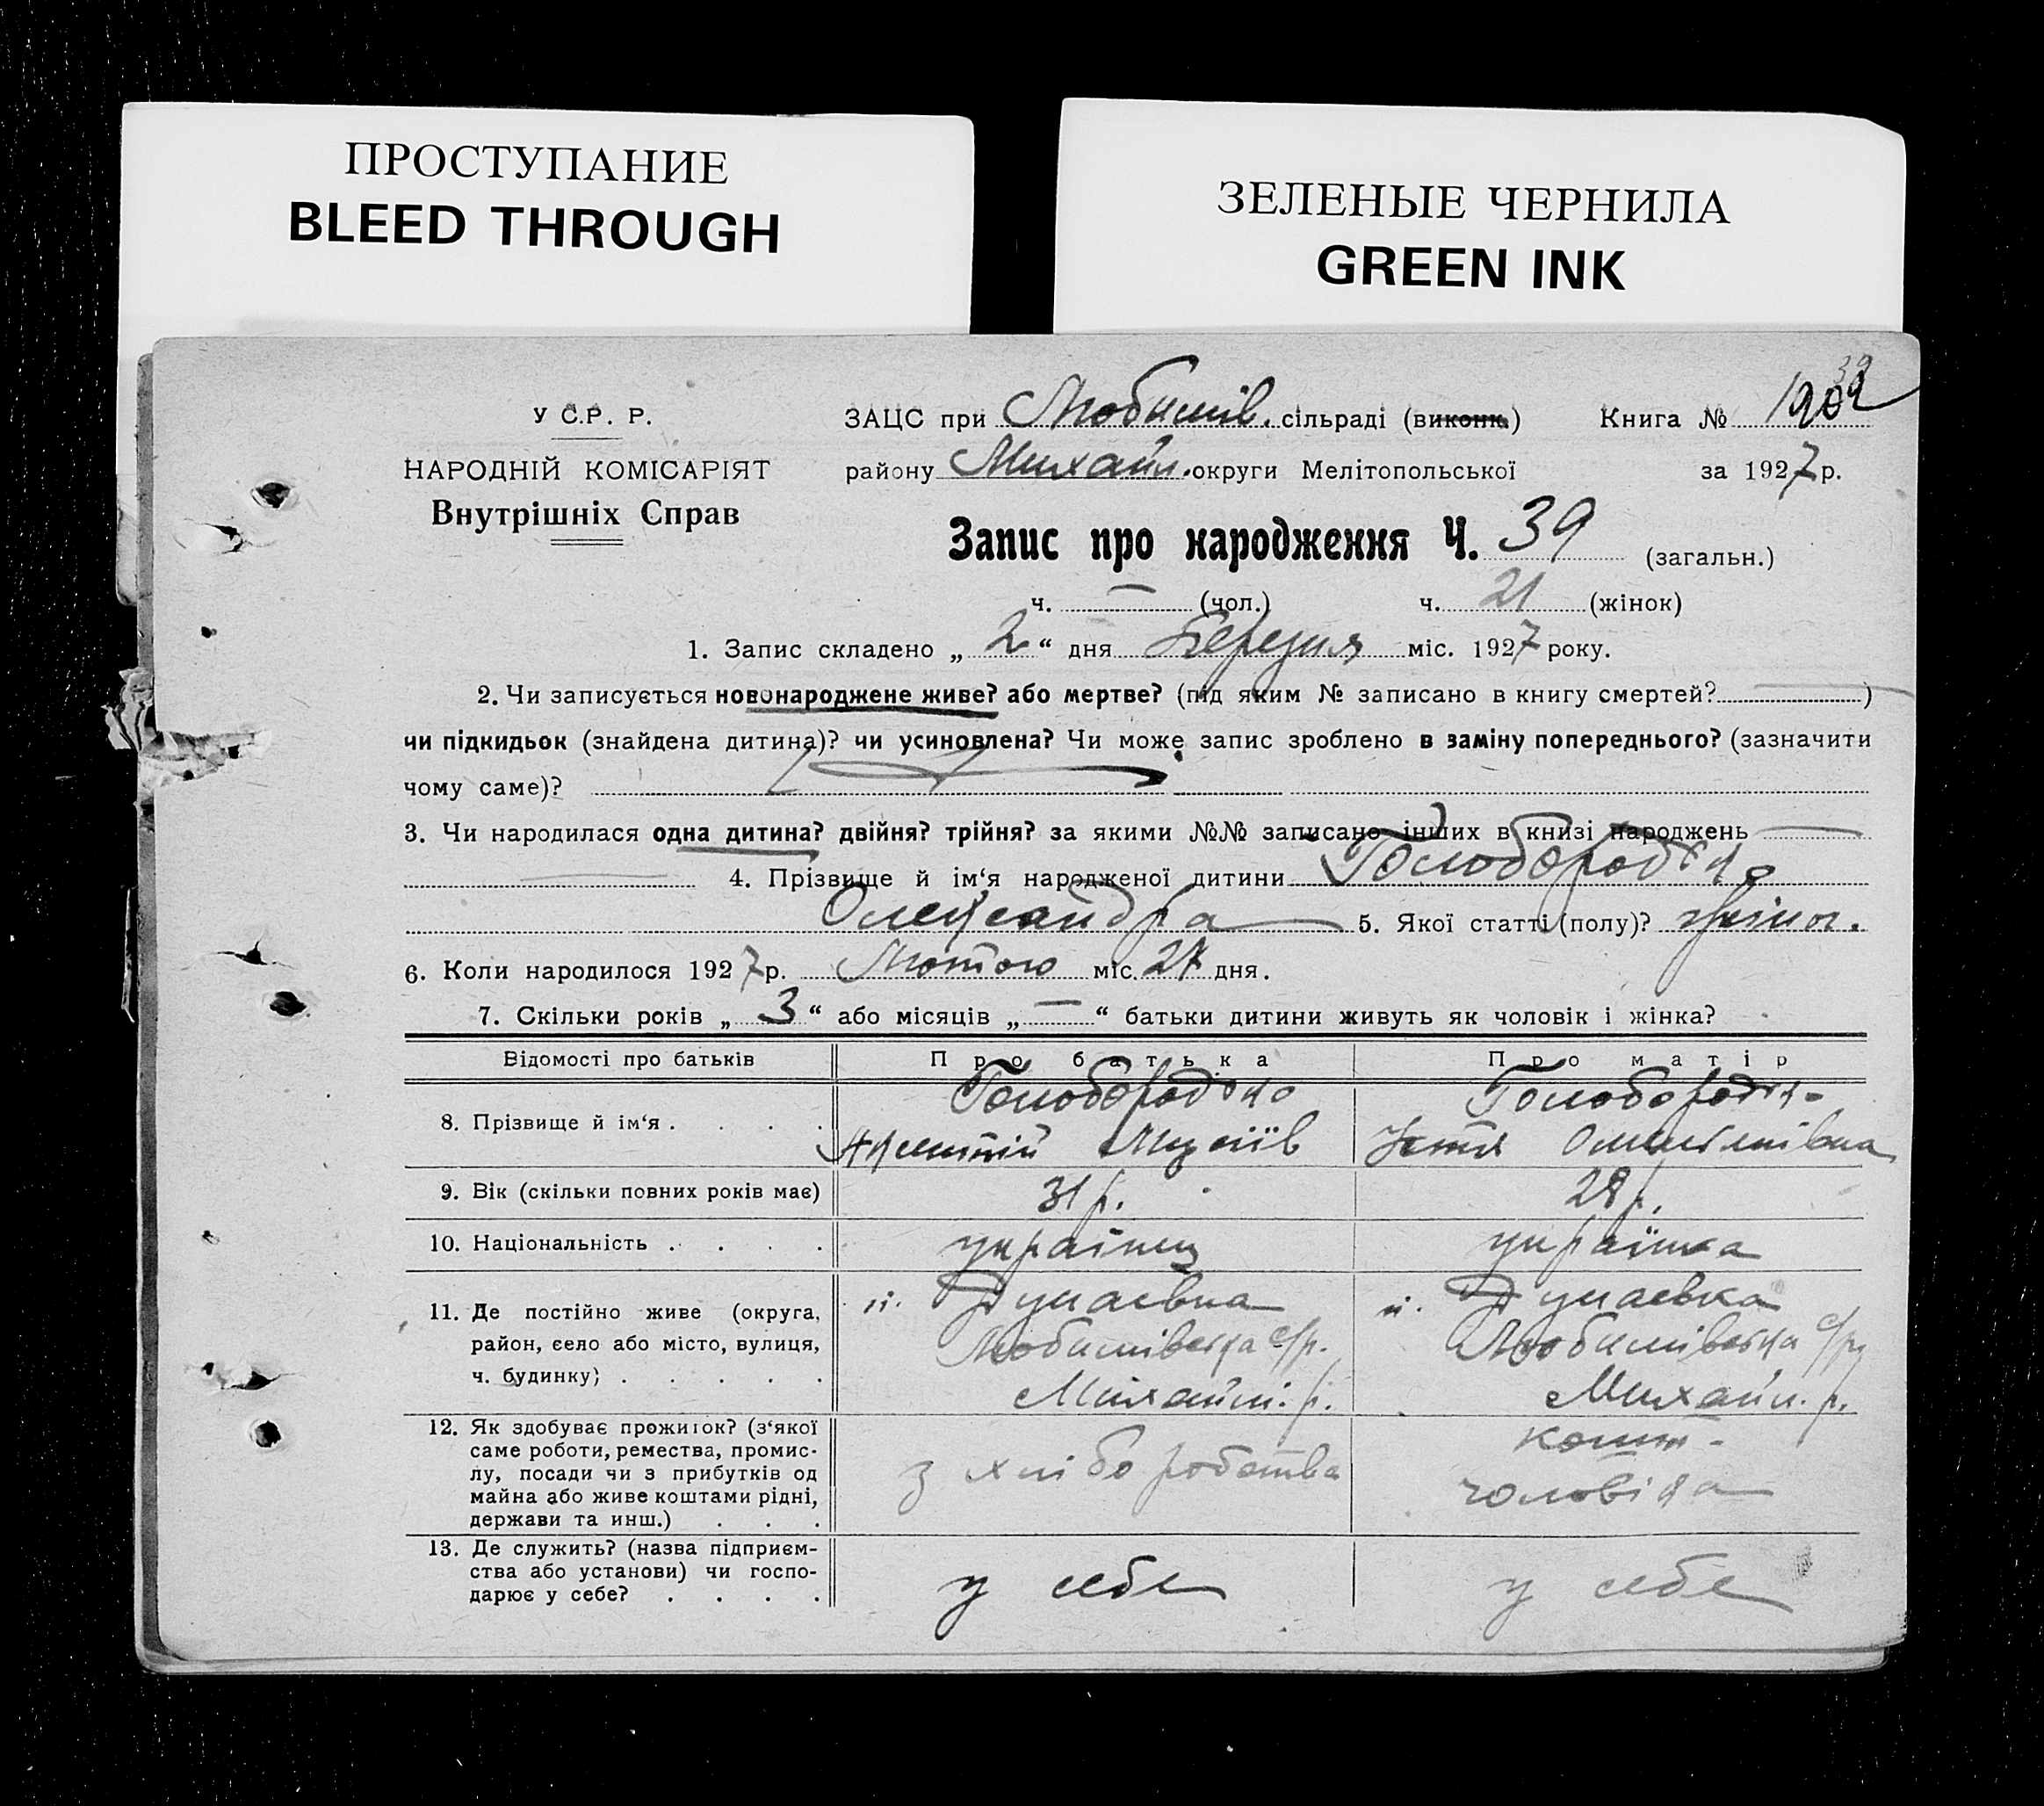 ПРОСТУПАНИЕ
BLEED THROUGH
ЗЕЛЕНЫЕ ЧЕРНИЛА
GREEN INK
39
У С.Р. Р.
НАРОДНІЙ КОМІСАРІЯТ
Внутрішніх Справ
ЗАЦС при Любимів. сільраді (виконк.) Книга №
району Михайл. округи Мелітопольської за 1927 р.
Запис про народження Ч. 39 (загальн.)
ч. — (чол.) ч. 21 (жінок)
1. Запис складено „ 2 “ дня Березня міс. 1927 року.
2. Чи записується новонароджене живе? або мертве? (під яким № записано в книгу смертей? — )
чи підкидьок (знайдена дитина)? чи усиновлена? Чи може запис зроблено в заміну попереднього? (зазначити
чому саме)?
3. Чи народилася одна дитина? двійня? трійня? за якими №№ записано інших в книзі народжень —
— 4. Прізвище й ім‘я народженої дитини Голобородько
Олександра 5. Якої статті (полу)? жіноч.
6. Коли народилося 1927 р. Лютого міс. 27 дня.
7. Скільки років „ 3 “ або місяців „ — “ батьки дитини живуть як чоловік і жінка?
Відомості про батьків Про батька Про матір
8. Прізвище й ім‘я . . . . Голобородько Голобородько
Устя
9. Вік (скільки повних років має) 31 р. 28 р.
10. Національність . . . . українец українка
11. Де постійно живе (округа, район, село або місто, вулиця, ч. будинку) . . . . .
п. Дунаєвка
Любимівська с/р.
Михайл. р.
п. Дунаєвка
Любимівська с/р
Михайл. р.
12. Як здобуває прожиток? (з‘якої
саме роботи, ремества, промис-
лу, посади чи з прибутків од
майна або живе коштами рідні,
держави та инш.) . . .
з хліборобства
кошт.
чоловіка
13. Де служить? (назва підприєм-
ства або установи) чи госпо-
дарює у себе? . . . .
у себе у себе